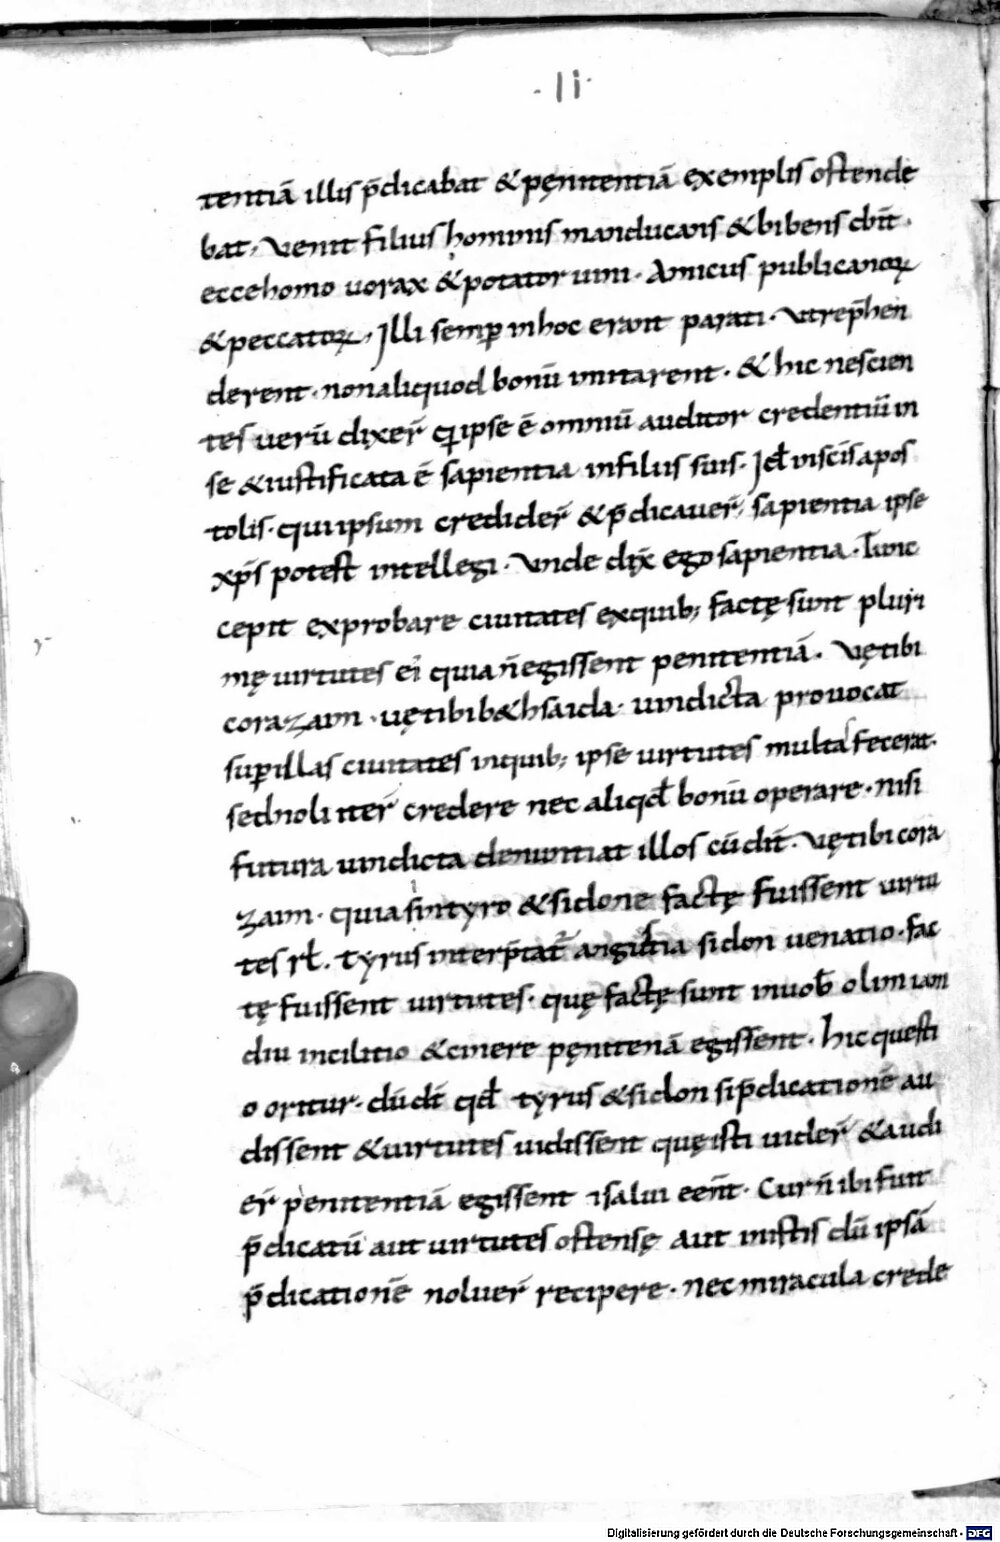 · li ·
tentiā illis p̄dicabat & pęnitentiā exemplis ostende
bat, Venit filius hominis manducans & bibens & dn̄t ·
ecce homo uorax & potator uini · Amicus publicanoꝝ
& peccatoꝝ, Illi semꝑ in hoc erant parati · Vt rep̄hen
derent · non aliquod bonū imitarent · & hic nescien
tes uerū dixer̄ q ipse ē omniū auditor credentiū in
se & iustificata ē sapientia in filiis suis · Id÷ in scīs apos
tolis · qui ipsum credider̄ & p̄dicauer̄, sapientia ipse
xp̄s potest intellegi · Vnde dix̄ ego sapientia · Tunc
cepit exprobare ciuitates ex quib; factę sunt pluri
mę uirtutes ei quia n̄ egissent penitentiā · Vę tibi
corazaim · uę tibi b&hsaida · uindicta prouocat
suꝑ illas ciuitates in quib; ipse uirtutes multas fecerat ·
sed noliiter̄ credere nec aliqd̄ bonū operare · nisi
futura uindicta denuntiat illos cū dn̄t · Vę tibi cora
zaim · quia si in tyro & sidone factę fuissent uirtu
tes rł. Tyrus interp̄tat̄ angustia sidon uenatio · fac
tę fuissent uirtutes · quę factę sunt in uob̄ olim iam
diu in cilitio & cinere pęnitenā egissent · hic questi
o oritur · dū dn̄t qd̄ tyrus & sidon si p̄dicationē au
dissent & uirtutes uidissent quę isti uider̄ & audi
er̄ penitentiā egissent ⁊ salui eēnt · Cur n̄ ibi fuit
p̄dicatū aut uirtutes ostensę aut in istis dū ipsā
p̄dicationē noluer̄ recipere · nec miracula crede
Digitalisierung gefördert durch die Deutsche Forschungsgemeinschaft - DFG